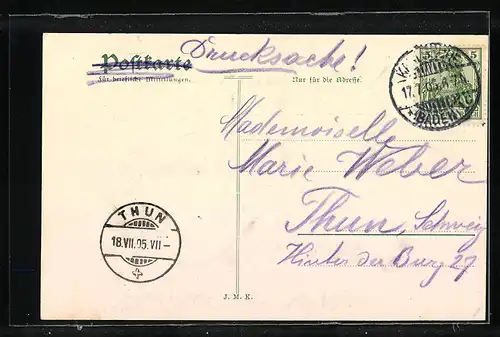 Postkarte Drucksache!
Für briefliche Mitteilungen.
Nur für die Adresse.
5
17.7.05.
(BADEN)
Mademoiselle
Marie Weber
Thun, Schweiz
Hinter der Burg 27
THUN
18.VII.05.VII-
J. M. K.